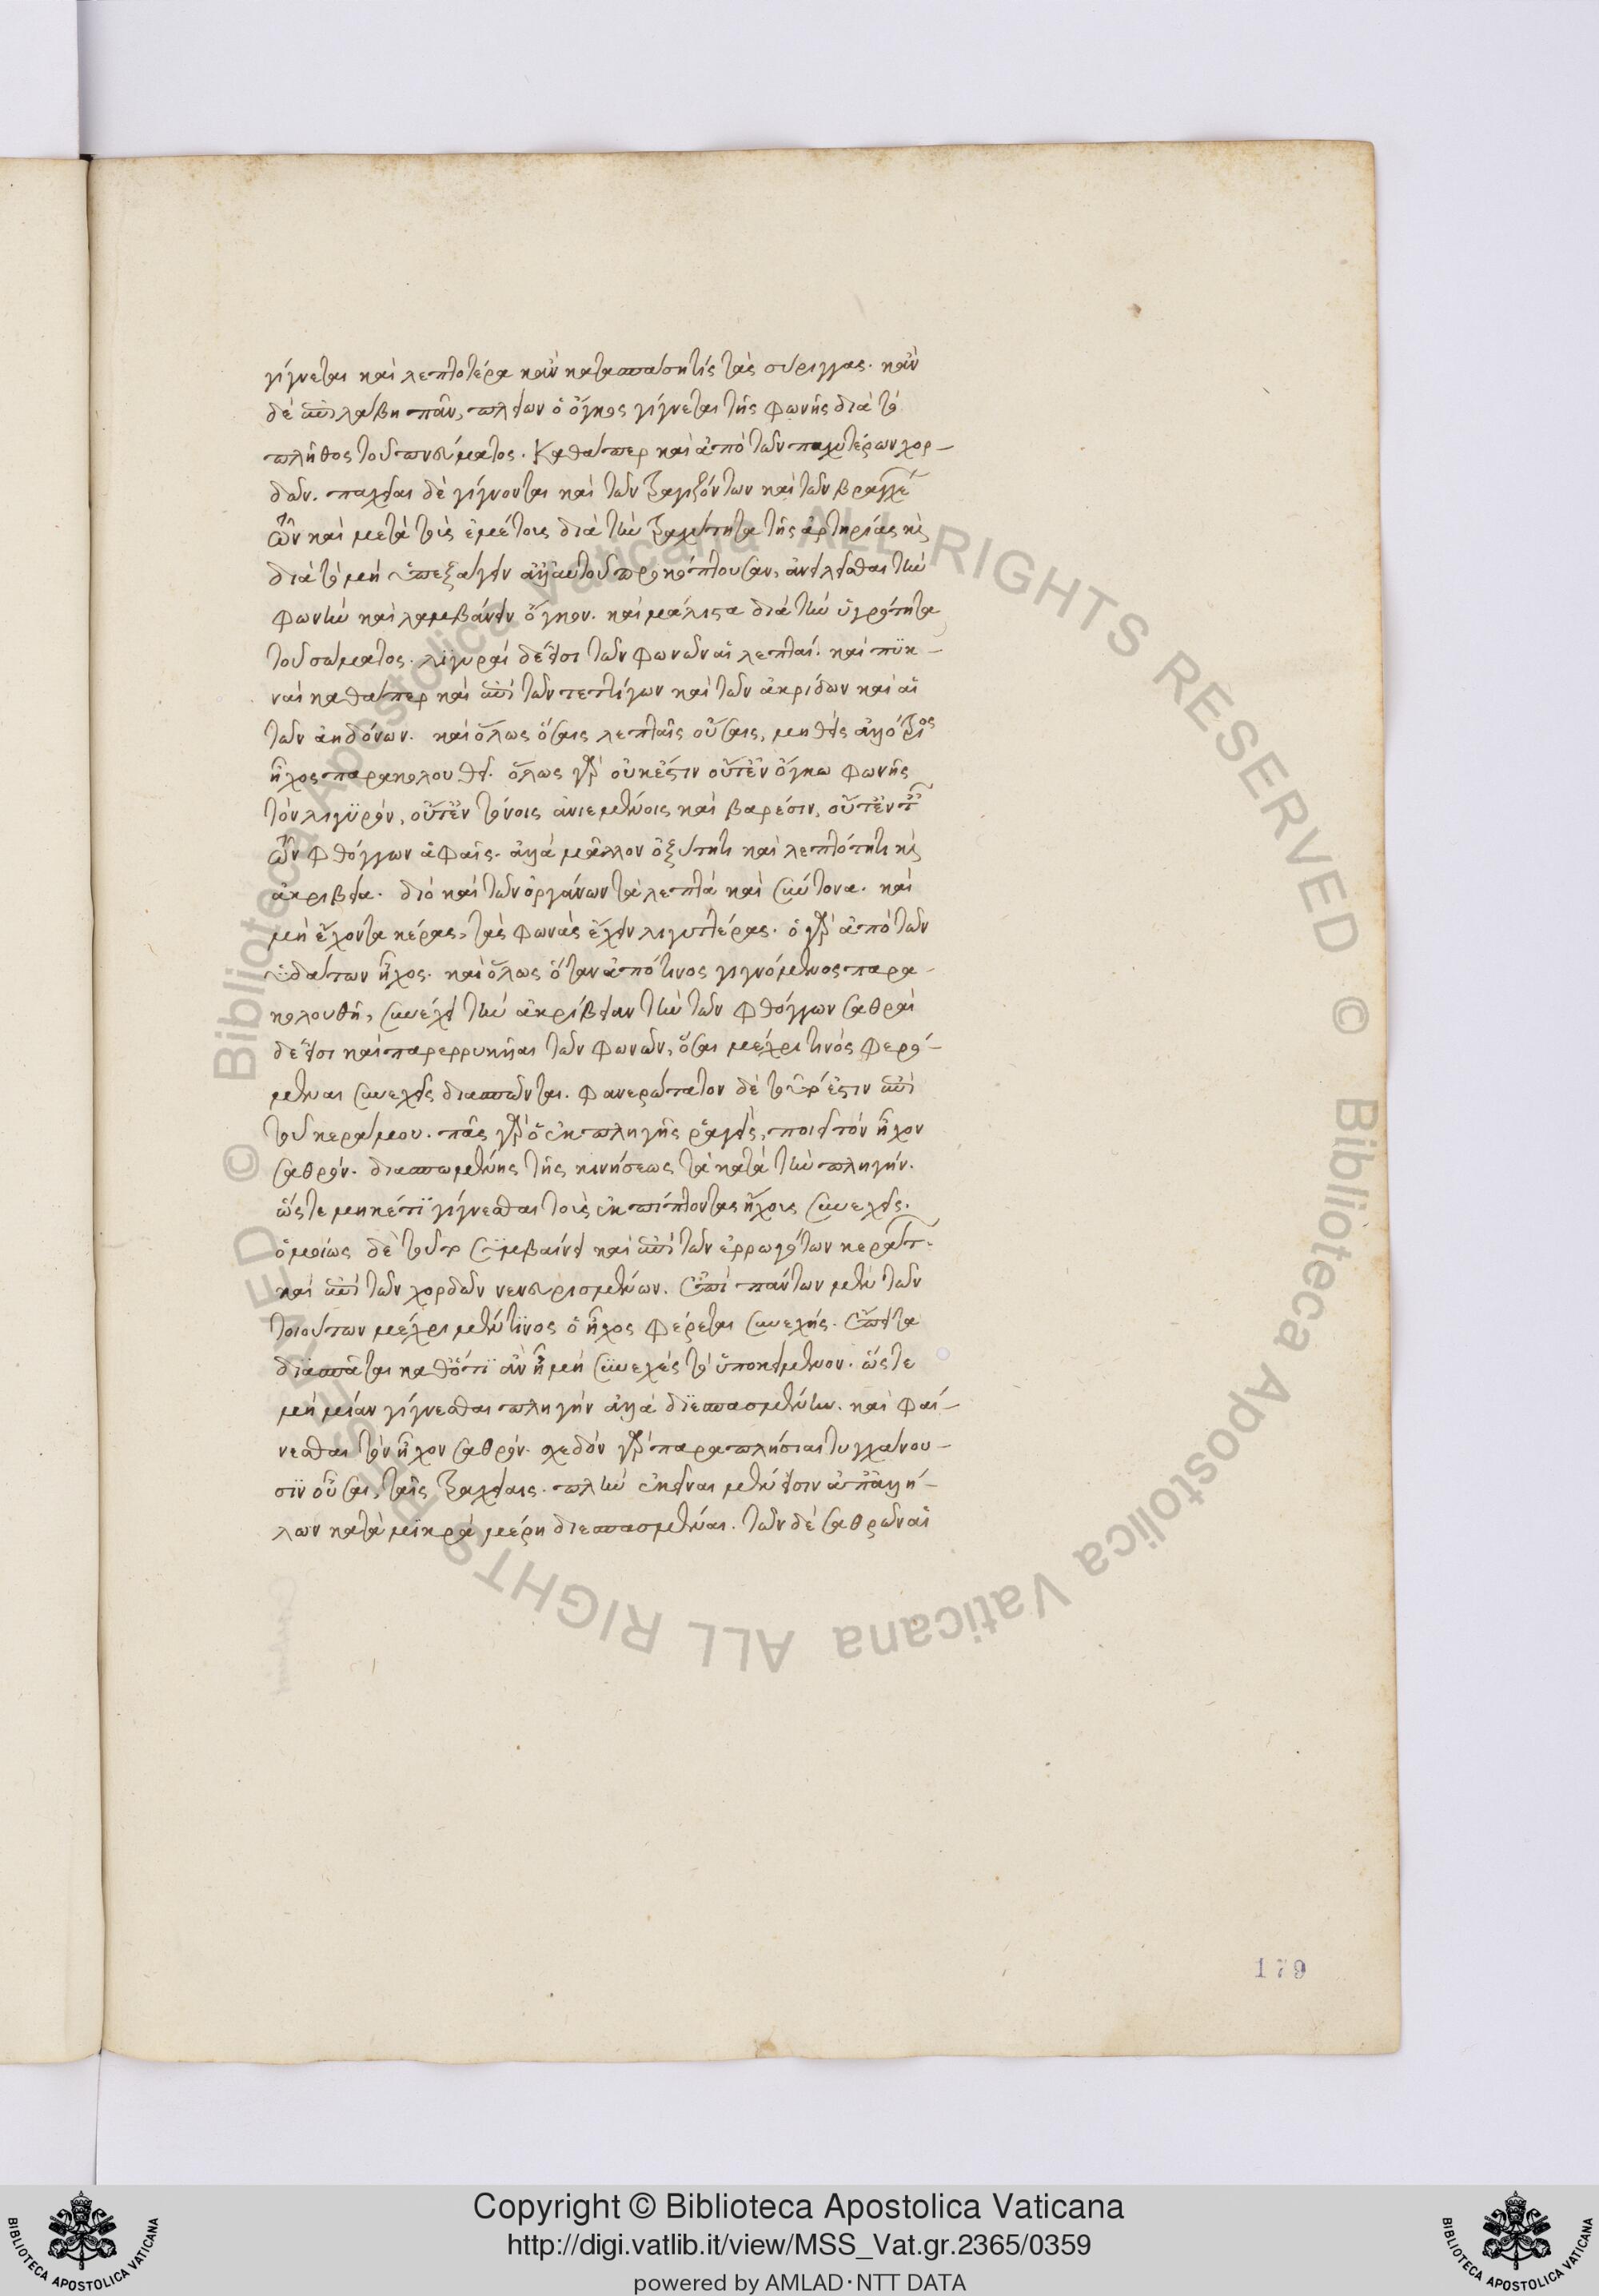 γίγνεται καὶ λεπτοτέρα κἂν κατασπάση τίς τὰς σύριγγας. κἂν
δὲ ἐπιλάβη πᾶν, πλείων ὁ ὄγκος γίγνεται τῆς φωνῆς διὰ τὸ
πλῆθος τοῦ πνεύματος. Καθάπερ καὶ ἀπὸ τῶν παχυτέρων χορ-
δῶν. παχεῖαι δὲ γίγνονται καὶ τῶν τραγιζόντων καὶ τῶν βραγχ
ῶν καὶ μετὰ τοὺς ἐμέτους διὰ τὴν τραχύτητα τῆς ἀρτηρίας κὶ
διὰ τὸ μὴ ὑπεξάγειν ἀλλ' αὐτοῦ προκόπτουσαν, ἀνειλεῖσθαι τὴν
φωνὴν καὶ λαμβάνειν ὄγκον. καὶ μάλιστα διὰ τὴν ὑγρότητα
τοῦ σώματος. λιγυραὶ δέ εἰσι τῶν φωνῶν αἱ λεπταί. καὶ πυκ-
ναὶ καθάπερ καὶ ἐπὶ τῶν τεττίγων καὶ τῶν ἀκρίδων καὶ αἱ
τῶν ἀηδόνων. καὶ ὅλως ὅσαις λεπταῖς οὔσαις, μηθεὶς ἀλλότριος
ἦχος παρακολουθεῖ. ὅλως γὰρ οὐκ ἔστιν οὔτ' ἐν ὄγκω φωνῆς
τὸν λιγυρόν, οὔτ' ἐν τόνοις ἀνιεμένοις καὶ βαρέσιν, οὔτ' ἐν τ
ῶν φθόγγων ἁφαῖς. ἀλλὰ μᾶλλον ὀξύτητι καὶ λεπτότητι κὶ
ἀκριβεία. διὸ καὶ τῶν ὀργάνων τὰ λεπτὰ καὶ σύντονα. καὶ
μὴ ἔχοντα κέρας, τὰς φωνὰς ἔχειν λιγυρτέρας. ὁ γὰρ ἀπὸ τῶν
ὑδάτων ἦχος. καὶ ὅλως ὅταν ἀπό τινος γιγνόμενος παρα-
κολουθῆ, συνέχει τὴν ἀκρίβειαν τὴν τῶν φθόγγων σαθραὶ
δέ εἰσι καὶ παρερρυηκῖαι τῶν φωνῶν, ὅσαι μέχρι τινὸς φερό-
μεναι συνεχεῖς διασπῶνται. φανερώτατον δὲ τοῦτ' ἔστιν ἐπὶ
τοῦ κεράμου. πᾶς γὰρ ὁ ἐκ πληγῆς ῥαγεὶς, ποιεῖ τὸν ἦχον
σαθρόν. διασπωμένης τῆς κινήσεως τὰ κατὰ τὴν πληγήν.
ὥστε μηκέτι γίγνεσθαι τοὺς ἐκπίπτοντας ἤχους συνεχεῖς.
ὁμοίως δὲ τοῦτο συμβαίνει καὶ ἐπὶ τῶν ἐρρωγότων κεράτ
καὶ ἐπὶ τῶν χορδῶν νενευρισμένων. Ἐπὶ πάντων μὲν τῶν
τοιούτων μέχρι μέν τινος ὁ ἦχος φέρεται συνεχής. ἔπειτα
διασπᾶται καθότι ἂν ἦ μὴ συνεχὲς τὸ ὑποκείμενον. ὥστε
μὴ μίαν γίγνεσθαι πληγὴν ἀλλὰ διεσπασμένην. καὶ φαί-
νεσθαι τὸν ἦχον σαθρόν. σχεδὸν γὰρ παραπλήσιαι τυγχάνου-
σιν οὖσαι, ταῖς τραχείαις. πλὴν ἐκεῖναι μέν εἰσιν ἀπ' ἀλλή-
λων κατὰ μικρὰ μέρη διεσπασμέναι. τῶν δὲ σαθρῶν αἱ
179
Copyright © Biblioteca Apostolica Vaticana
http://digi.vatlib.it/view/MSS_Vat.gr.2365/0359
powered by AMLAD·NTT DATA